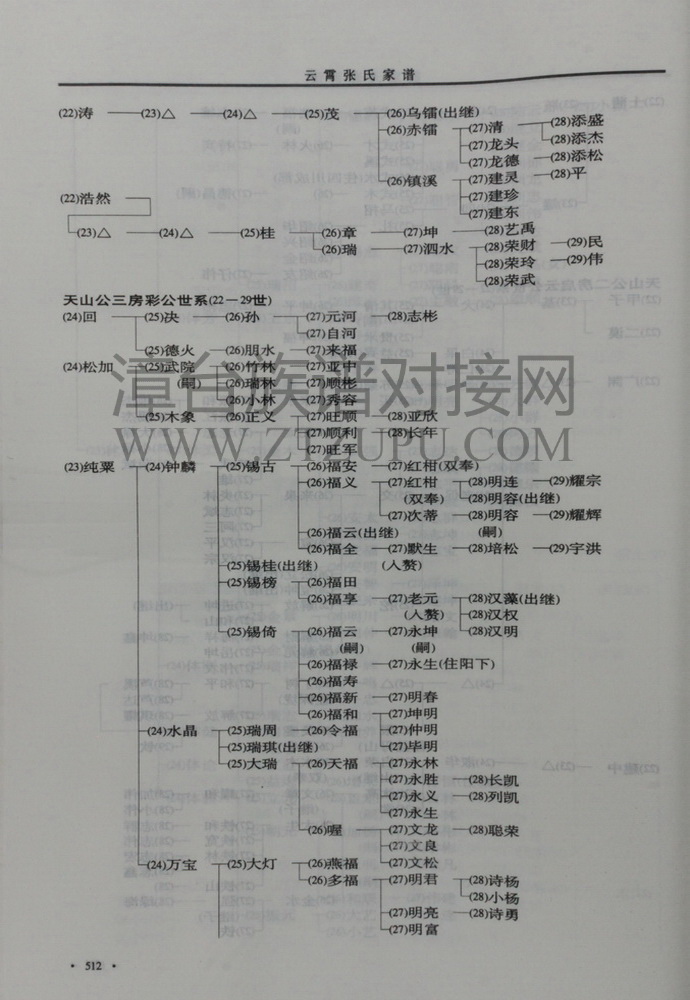 云霄张氏家谱
(22)涛 (23)△ (24)△ (25)茂 (26)乌镭(出继)
(26)赤镭 (27)清 (28)添盛
(27)龙头 (28)添杰
(27)龙德 (28)添松
(26)镇溪 (27)建灵 (28)平
(22)浩然 (27)建珍
(27)建东
(23)△ (24)△ (25)桂 (26)章 (27)坤 (28)艺禹
(26)瑞 (27)泗水 (28)荣财 (29)民
(28)荣玲 (29)伟
(28)荣武
天山公三房彩公世系(22－29世)
(24)回 (25)决 (26)孙 (27)元河 (28)志彬
(27)自河
(25)德火 (26)朋水 (27)来福
(24)松加 (25)武院 (26)竹林 (27)亚中
(嗣) (26)瑞林 (27)顺彬
(26)小林 (27)秀容
(25)木象 (26)正义 (27)旺顺 (28)亚欣
(27)顺利 (28)长年
(27)旺军
漳台族谱对接网
WWW.ZTZUPU.COM
(23)纯粟 (24)钟麟 (25)锡古 (26)福安 (27)红柑(双奉)
(26)福义 (27)红柑 (28)明连 (29)耀宗
(双奉) (28)明容(出继)
(27)次蒂 (28)明容 (29)耀辉
(26)福云(出继) (嗣)
(26)福全 (27)默生 (28)培松 (29)宇洪
(25)锡桂(出继) (入赘)
(25)锡榜 (26)福田
(26)福享 (27)老元 (28)汉藻(出继)
(入赘) (28)汉权
(25)锡倚 (26)福云 (27)永坤 (28)汉明
(嗣) (嗣)
(26)福禄 (27)永生(住阳下)
(26)福寿
(26)福新 (27)明春
(26)福和 (27)坤明
(24)水晶 (25)瑞周 (26)令福 (27)仲明
(25)瑞琪(出继) (27)毕明
(25)大瑞 (26)天福 (27)永林
(27)永胜 (28)长凯
(27)永义 (28)列凯
(27)永生
(26)喔 (27)文龙 (28)聪荣
(27)文良
(24)万宝 (25)大灯 (26)燕福 (27)文松
(26)多福 (27)明君 (28)诗杨
(28)小杨
(27)明亮 (28)诗勇
(27)明富
· 512 ·